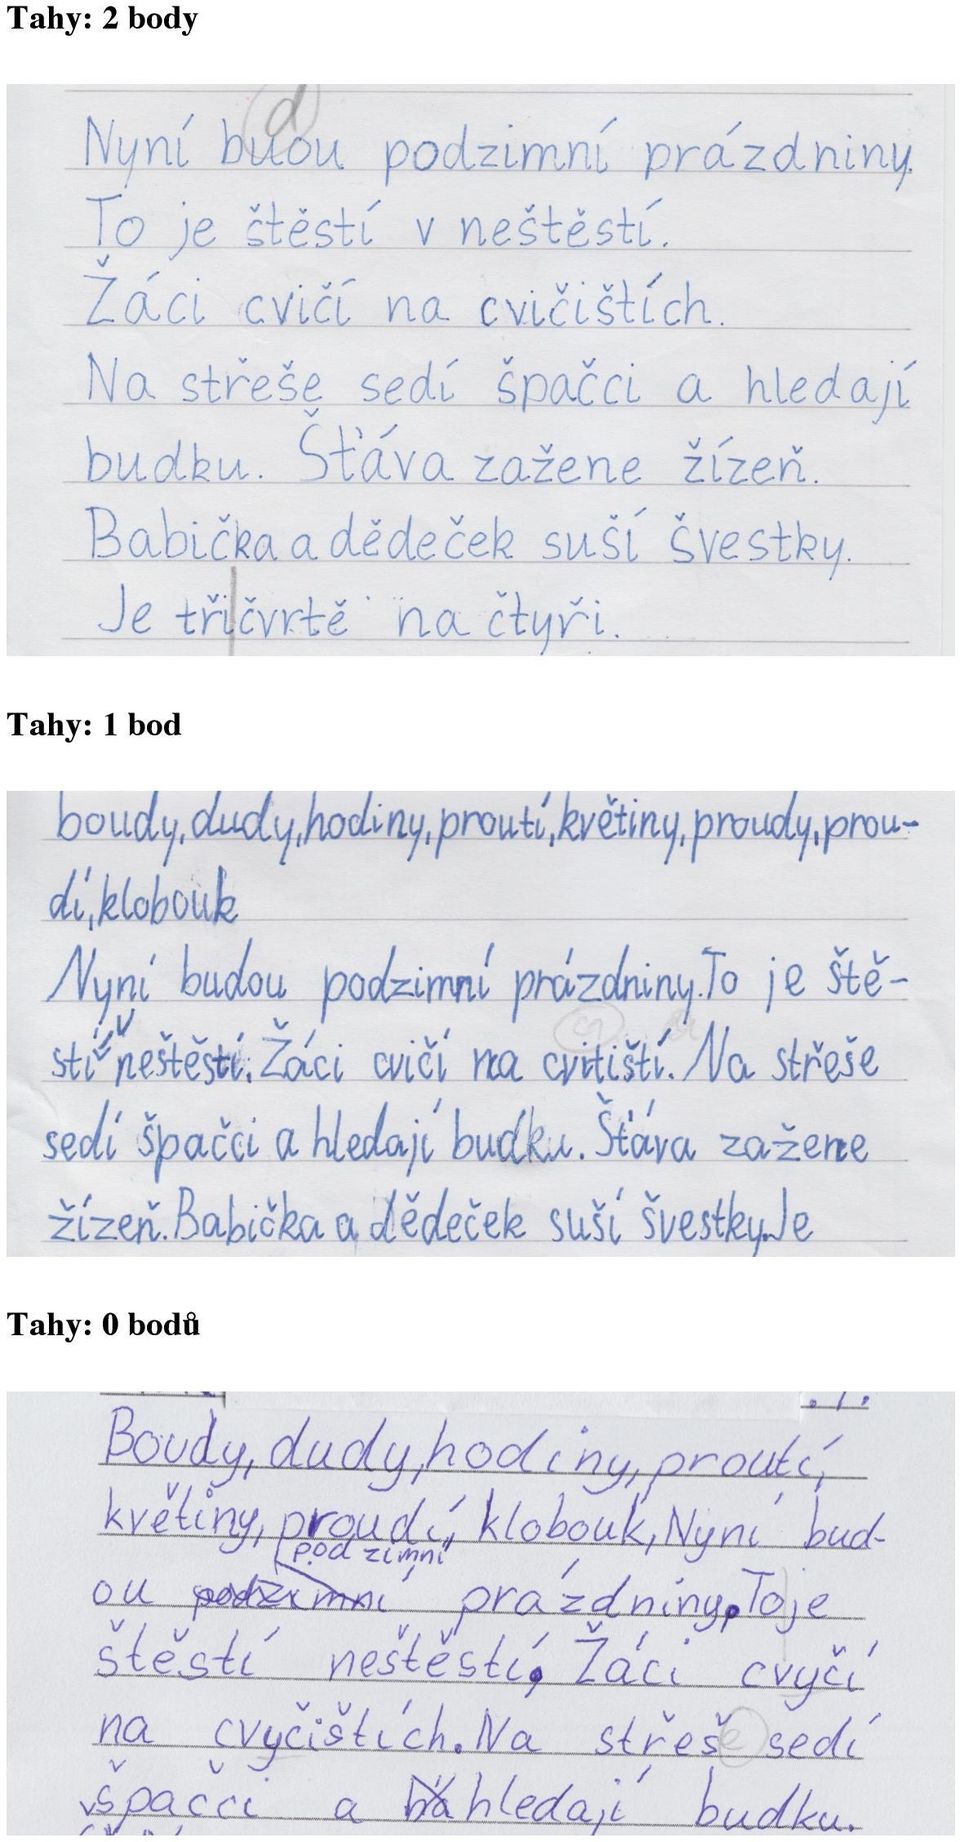 Tahy: 2 body
d
Nyní buou podzimní prázdniny.
To je štěstí v neštěstí.
Žáci cvičí na cvičištích.
Na střeše sedí špačci a hledají
budku. Šťáva zažene žízeň.
Babička a dědeček suší švestky.
Je třičvrtě na čtyři.
Tahy: 1 bod
boudy, dudy, hodiny, proutí, květiny, proudy, prou-
dí, klobouk
Nyní budou podzimní prázdniny. To je ště-
stí v neštěstí. Žáci cvičí na cvitiští. Na střeše
sedí špačci a hledají budku. Šťáva zažene
žízeň. Babička a dědeček suší švestky. Je
Tahy: 0 bodů
Boudy, dudy, hodiny, proutí,
květiny, proudí, klobouk, Nyní bud-
podzimní
ou podzimní prázdniny. To je
štěstí neštěstí, Žáci cvyčí
na cvyčištích. Na střeše sedí
špačci a hledají budku.